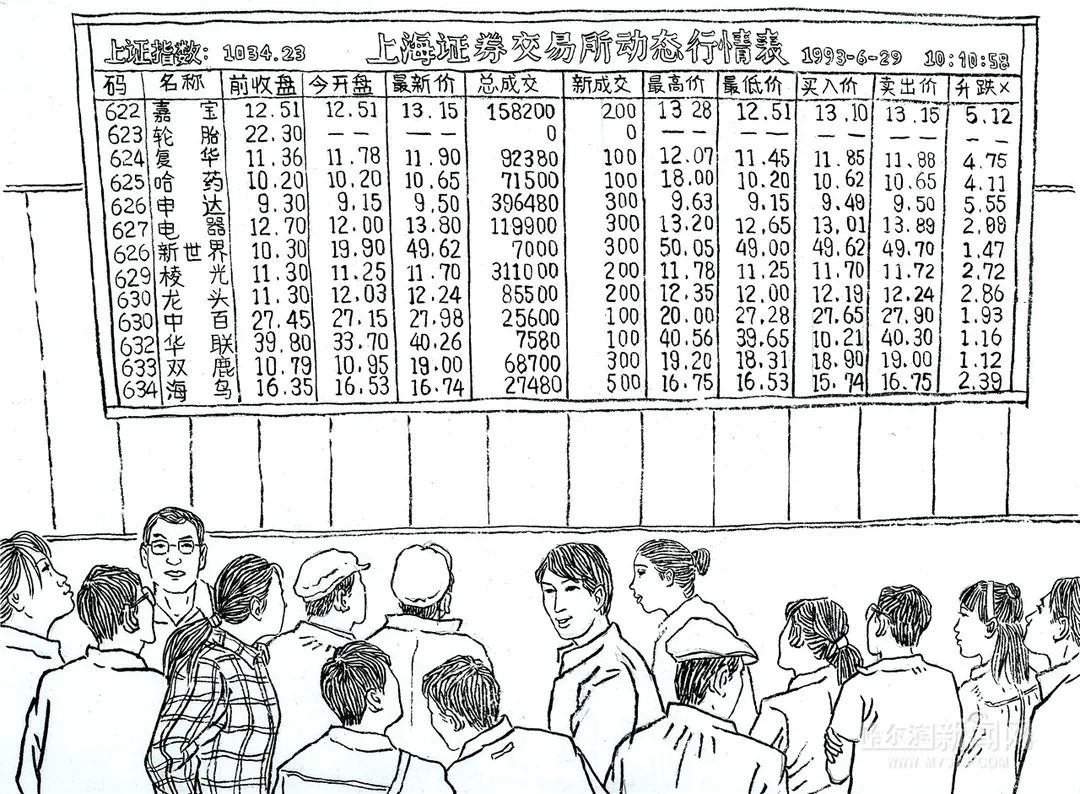 上证指数：1034.23 上海证券交易所动态行情表 1993-6-29 10:10:58
码 名称 前收盘 今开盘 最新价 总成交 新成交 最高价 最低价 买入价 卖出价 升跌×
622 嘉宝 12.51 12.51 13.15 158200 200 13.28 12.51 13.10 13.15 5.12
623 轮胎 22.30 —— —— 0 0 —— —— —— —— ——
624 复华 11.36 11.78 11.90 92380 100 12.07 11.45 11.85 11.88 4.75
625 哈药 10.20 10.20 10.65 71500 100 18.00 10.20 10.62 10.65 4.11
626 申达 9.30 9.15 9.50 396480 300 9.63 9.15 9.49 9.50 5.55
627 电器 12.70 12.00 13.80 119900 300 13.20 12.65 13.01 13.89 2.88
626 新世界 10.30 19.90 49.62 7000 300 50.05 49.00 49.62 49.70 1.47
629 棱光 11.30 11.25 11.70 311000 200 11.78 11.25 11.70 11.72 2.72
630 龙头 11.30 12.03 12.24 85500 200 12.35 12.00 12.19 12.24 2.86
630 中百 27.45 27.15 27.98 25600 100 20.00 27.28 27.65 27.90 1.93
632 华联 39.80 33.70 40.26 7580 100 40.56 39.65 10.21 40.30 1.16
633 双鹿 10.79 10.95 19.00 68700 300 19.20 18.31 18.90 19.00 1.12
634 海鸟 16.35 16.53 16.74 27480 500 16.75 16.53 15.74 16.75 2.39
哈尔滨新闻网